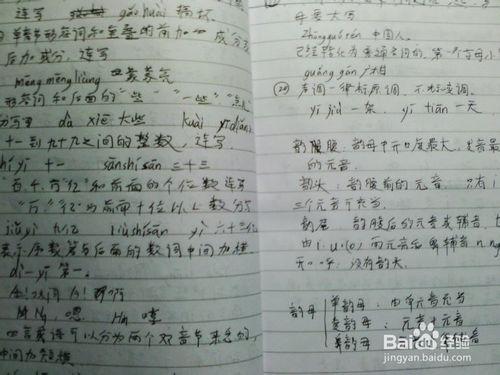 连写 gǎo huài 搞坏
单音节形容词和重叠的前加成分或
后加成分,连写
mēng mēng liàng 蒙蒙亮
形容词和后面的"些" "一些"
分写 dà xiē 大些 kuài yīdiǎnr
十一到九十九之间的整数,连写.
shíyī 十一 sānshísān 三十三
"百、千、万、亿"和前面的个位数连写
"万""亿"与前面十位以上数 分写
jiǔyì 九亿 liùshísānyì 六十三亿
表示序数 第与后面的数词中间加短横
dì-yī 第一。
嗯
四言成语可以分为两个双音节来念的,
中间加短横
母要大写
Zhōngguórén 中国人。
已经转化为普通名词的,第一个字母小
guǎnggān 广柑
(20) 声调一律标原调,不标变调.
yī jià 一架, yī tiān 一天,
韵腹,韵母中开口度最大,发音最
的元音.
韵头:韵腹前的元音.只有 i
三个元音可充当.
韵尾.韵腹后的元音或辅音.
由 i.u.(o) 两元音和鼻辅音 n.ng
没有韵头.
韵母
单韵母:由单元音充当
复韵母:元音+元音
鼻韵母:
Baidu 经验
jingyan.baidu.com